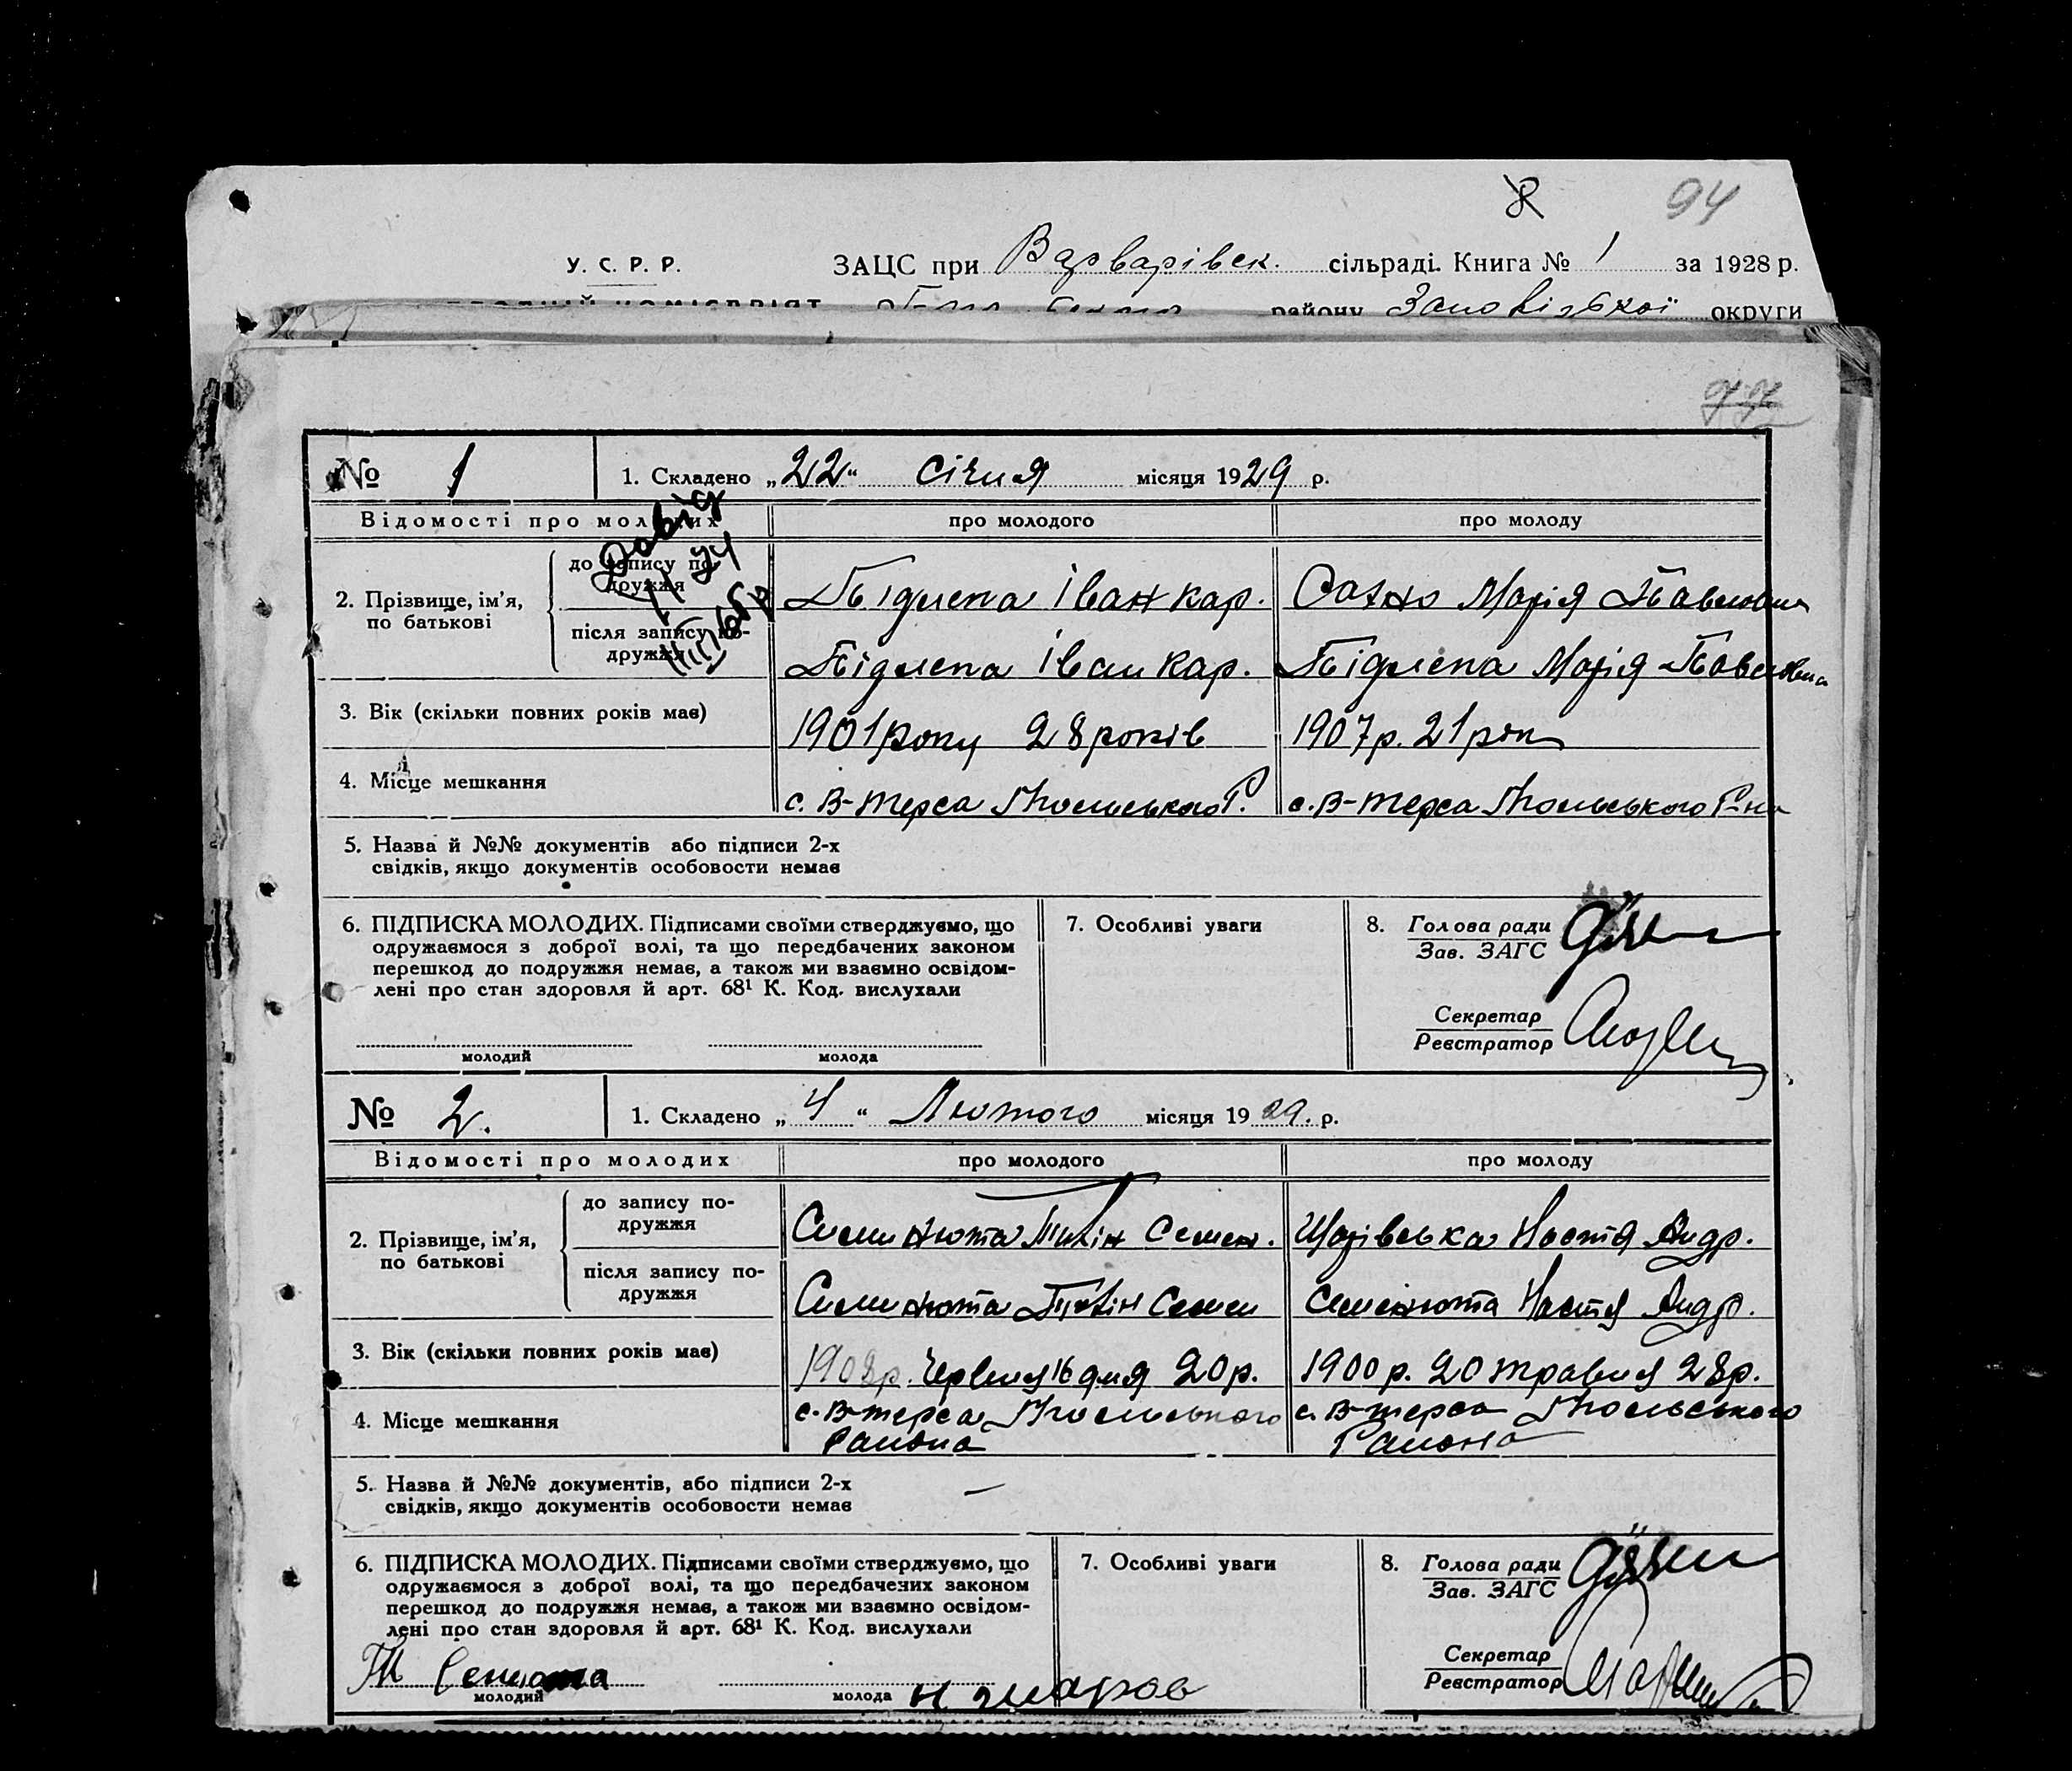 94
У. С. Р. Р. ЗАЦС при Варварівськ. сільраді. Книга № 1 за 1928 р.
району Запорізької округи
№ 1 1. Складено „22“ січня місяця 1929 р.
Відомості про молодих про молодого про молоду
2. Прізвище, ім’я, по батькові
до запису подружжя Підлепа Іван Кар. Сахно Марія Павловна
після запису подружжя Підлепа Іван Кар. Підлепа Марія Павловна
3. Вік (скільки повних років має) 1901 року 28 років 1907 р. 21 рік
4. Місце мешкання с. В-Терса Р. с. В-Терса Р-на
5. Назва й №№ документів або підписи 2-х
свідків, якщо документів особовости немає
6. ПІДПИСКА МОЛОДИХ. Підписами своїми стверджуємо, що
одружаємося з доброї волі, та що передбачених законом
перешкод до подружжя немає, а також ми взаємно освідом-
лені про стан здоровля й арт. 68¹ К. Код. вислухали
молодий молода
7. Особливі уваги
8. Голова ради
Зав. ЗАГС
Секретар
Реєстратор
№ 2. 1. Складено „4“ Лютого місяця 1929. р.
Відомості про молодих про молодого про молоду
2. Прізвище, ім’я,
по батькові
до запису по-
дружжя Симинюта Семен. Щарівська Настя Андр.
після запису по-
дружжя Симинюта Семен Семенюта Настя Андр.
3. Вік (скільки повних років має) 1908р. Червня 16 дня 20 р. 1900 р. 20 травня 28 р.
4. Місце мешкання с. В-Терса с. В-Терса
Района Района
5. Назва й №№ документів, або підписи 2-х
свідків, якщо документів особовости немає —
6. ПІДПИСКА МОЛОДИХ. Підписами своїми стверджуємо, що
одружаємося з доброї волі, та що передбачених законом
перешкод до подружжя немає, а також ми взаємно освідом-
лені про стан здоровля й арт. 68¹ К. Код. вислухали
молодий молода
7. Особливі уваги
8. Голова ради
Зав. ЗАГС
Секретар
Реєстратор